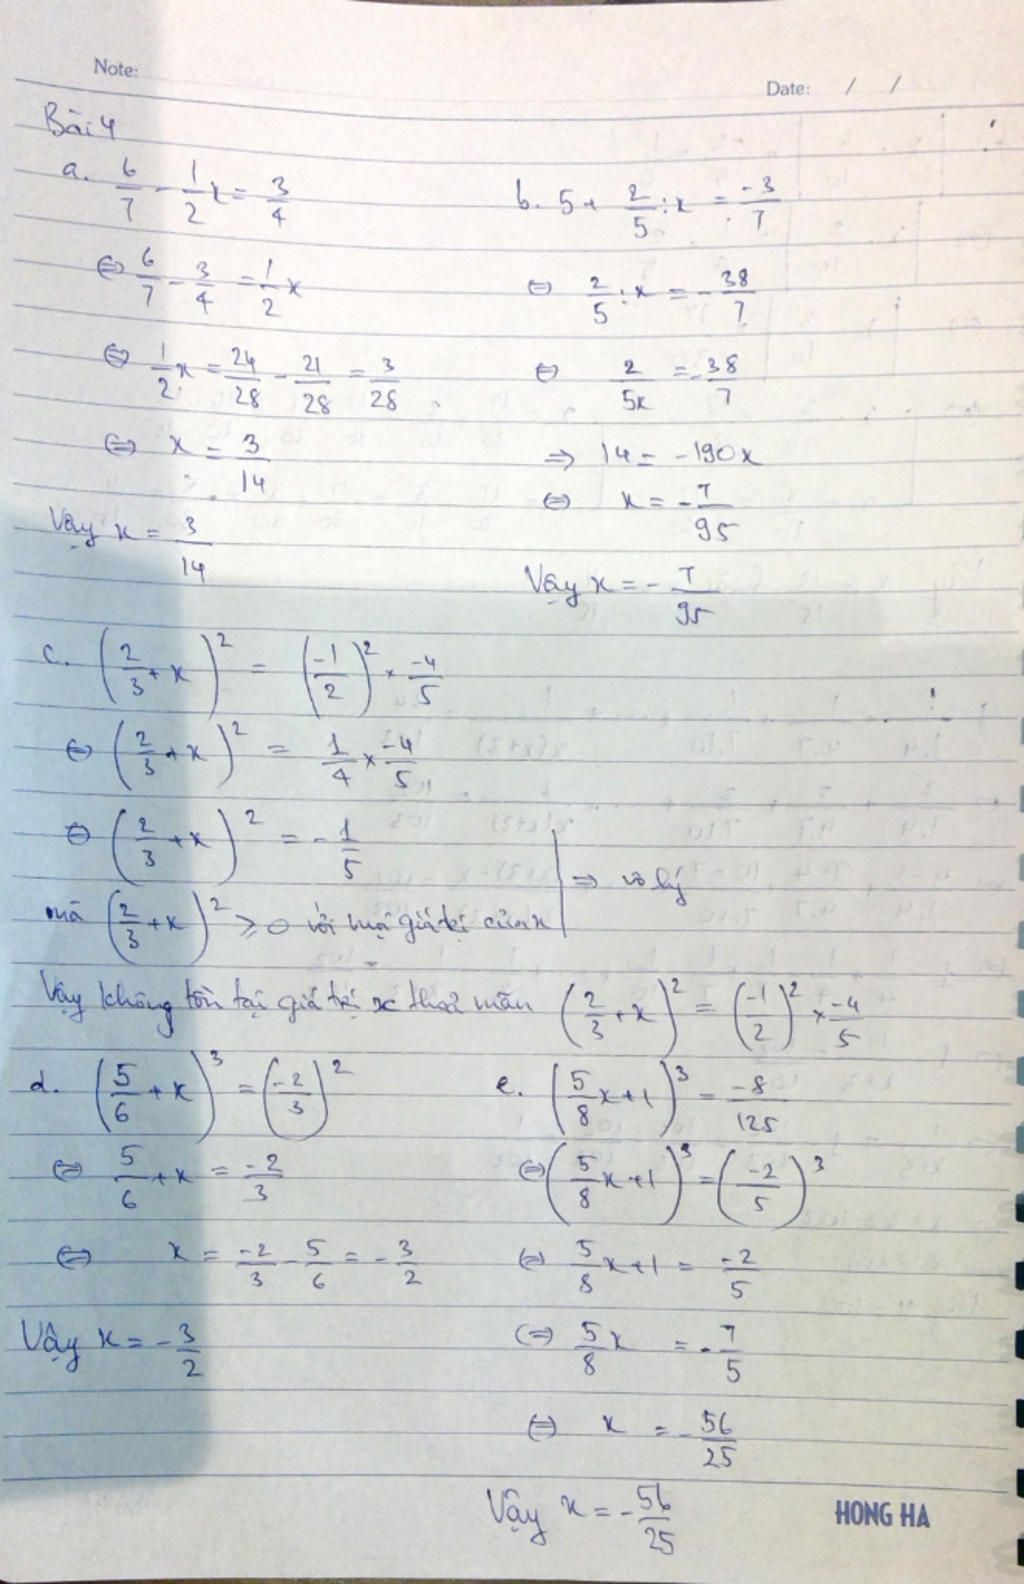 Note:
Date: / /
Bài 4
a. 6/7 - 1/2 x = 3/4
⇔ 6/7 - 3/4 = 1/2 x
⇔ 1/2 x = 24/28 - 21/28 = 3/28
⇔ x = 3/14
Vậy x = 3/14
b. 5 + 2/5 : x = -3/7
⇔ 2/5 : x = -38/7
⇔ 2/5x = -38/7
⇒ 14 = -190x
⇔ x = -7/95
Vậy x = -7/95
c. (2/3 + x)² = (-1/2)² × -4/5
⇔ (2/3 + x)² = 1/4 × -4/5
⇔ (2/3 + x)² = -1/5
mà (2/3 + x)² ≥ 0 với mọi giá trị của x | ⇒ vô lý
Vậy không tồn tại giá trị x thoả mãn (2/3 + x)² = (-1/2)² × -4/5
d. (5/6 + x)³ = (-2/3)²
⇔ 5/6 + x = -2/3
⇔ x = -2/3 - 5/6 = -3/2
Vậy x = -3/2
e. (5/8 x + 1)³ = -8/125
⇔ (5/8 x + 1)³ = (-2/5)³
⇔ 5/8 x + 1 = -2/5
⇔ 5/8 x = -7/5
⇔ x = -56/25
Vậy x = -56/25
HONG HA